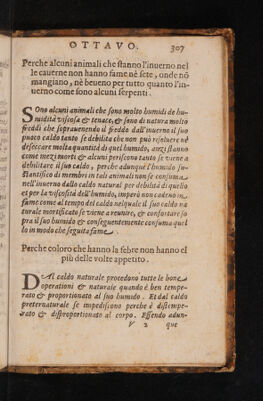 OTTAVO. 307
Perche alcuni animali che stanno l'inuerno nel
le cauerne non hanno fame nè sete, onde nõ
mangiano, nè beueno per tutto quanto l'in-
uerno come sono alcuni serpenti.
SOno alcuni animali che sono molto humidi de hu-
midità viscosa & tenace, & sono di natura molto
freddi che soprauenendo il freddo dall'inuerne il suo
puoco caldo tanto se debilita che non può resoluere nè
deseccare molta quantità di quel humido, anzi stanno
come mezi morti & alcuni persono tanto se viene a
debilitare il suo caldo, perche adunque l'humido su-
stantifico di membri in tali animali non se consuma
nell'inuerno dallo caldo natural per debilità di quello
et per la viscosità dell'humido, imperò non cadeno in
fame come al tempo del caldo nelquale il suo caldo na
turale mortificato se viene a reunire, & confortare so
pra il suo humido & conseguentemente consuma quel
lo in modo che seguita fame.
Perche coloro che hanno la febre non hanno el
più delle volte appetito.
DAl caldo naturale procedono tutte le bone
operationi & naturale quando è ben tempe-
rato & proportionato al suo humido. Et dal caldo
preternaturale se impedissono perche è distempe-
rato & disproportionato al corpo. Essendo adun-
V 2 que